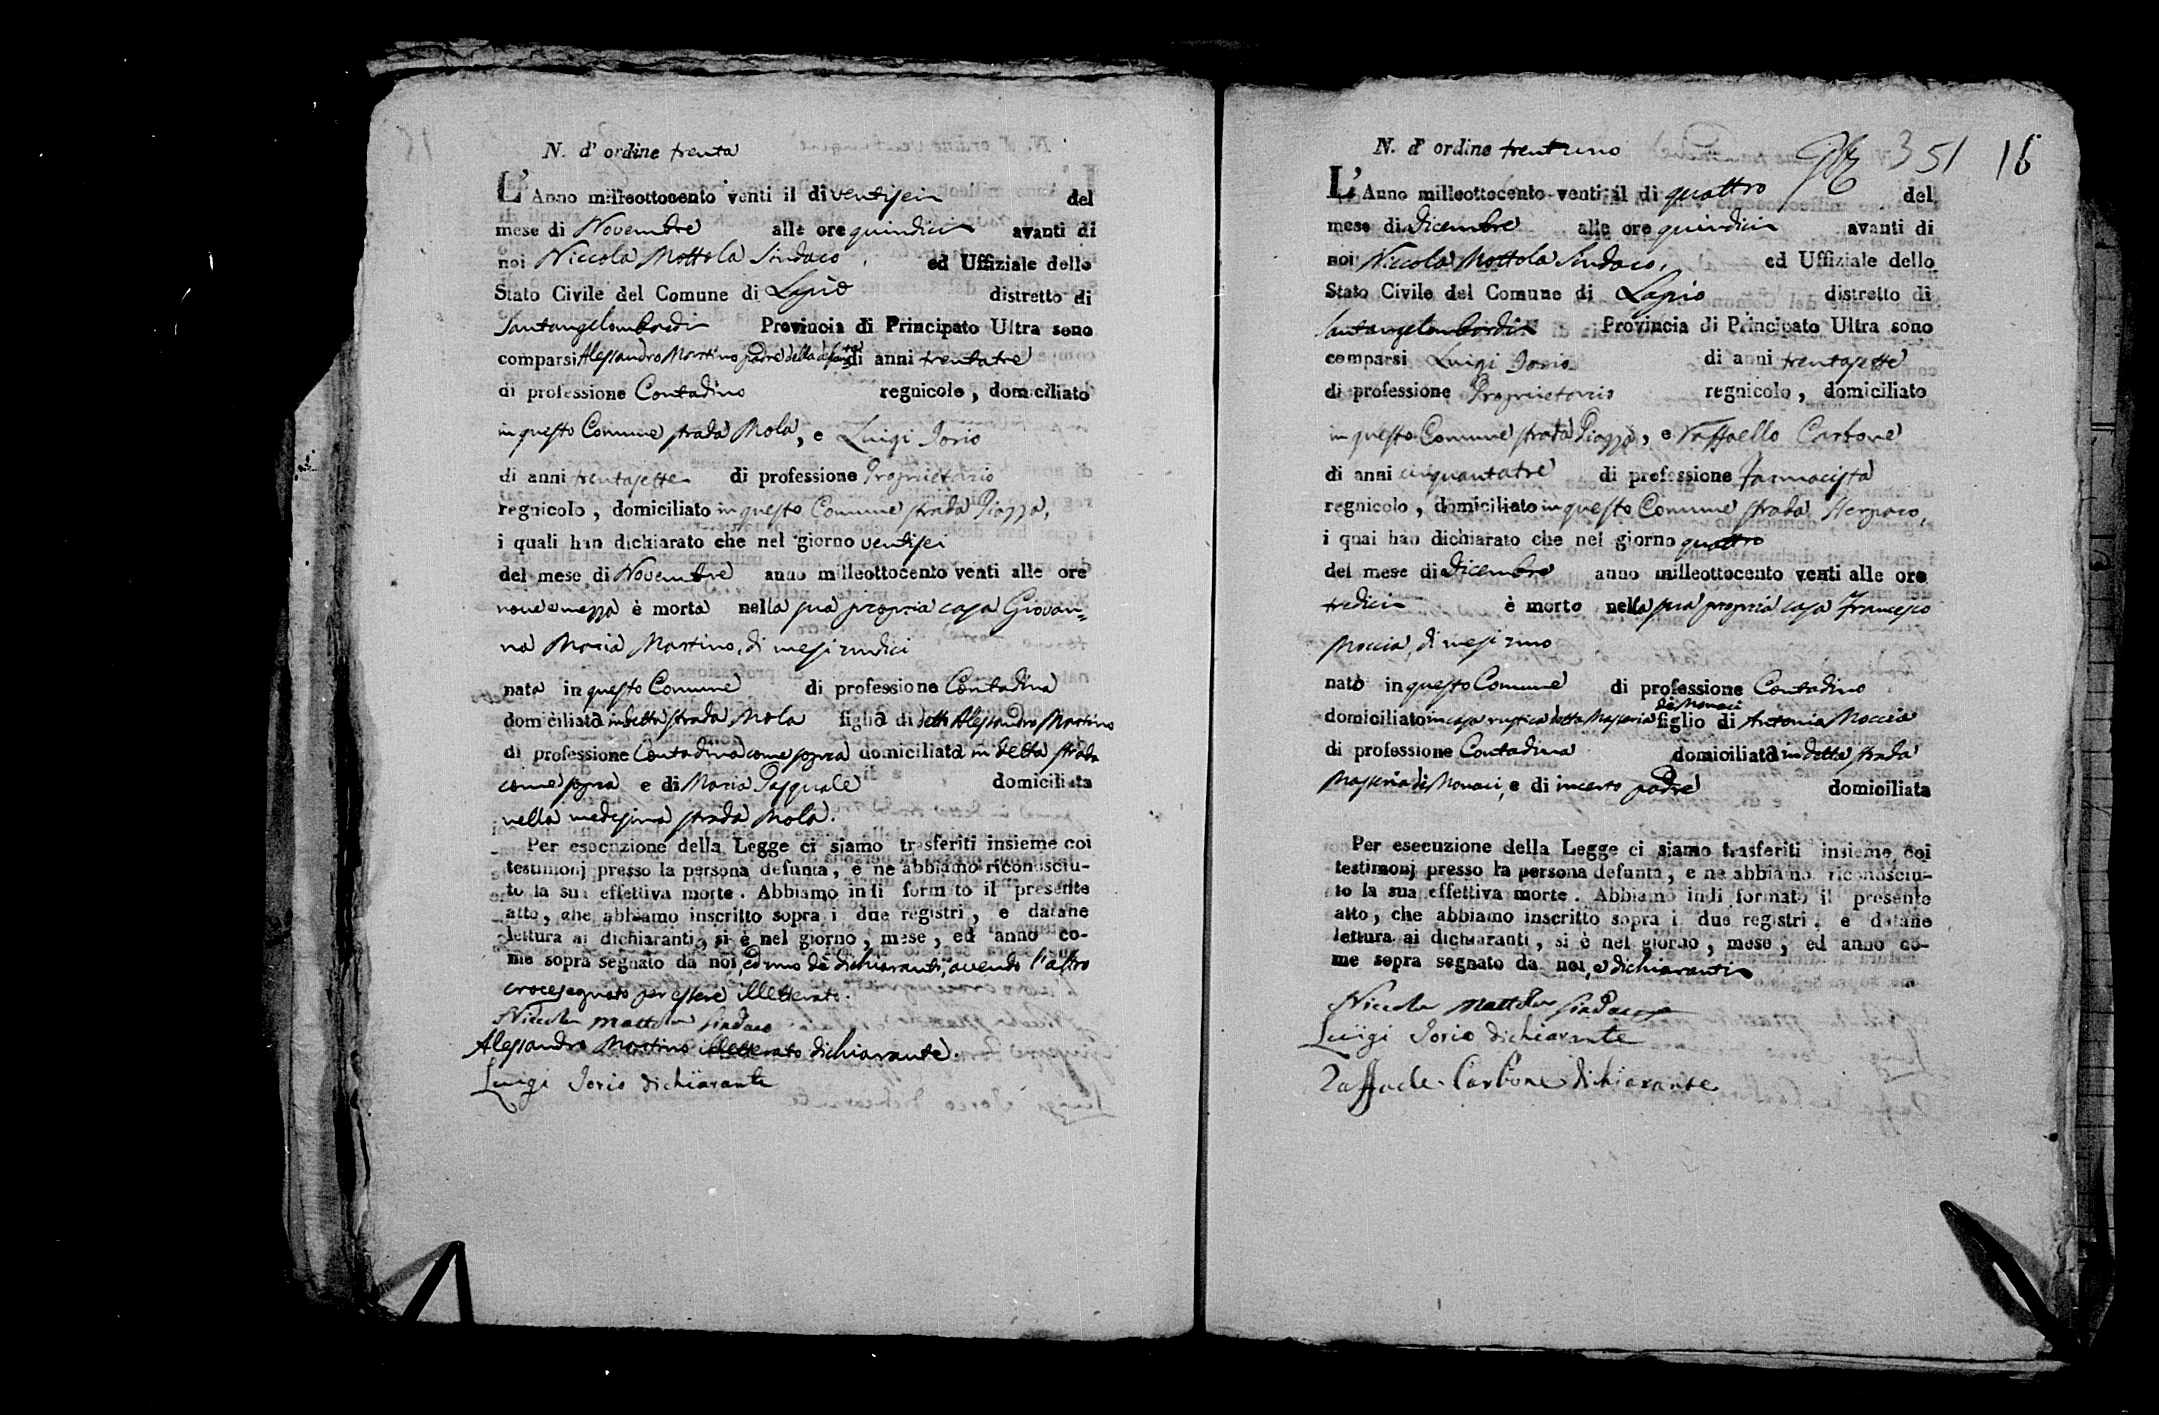 N. d' ordine trenta
L'Anno milleottocento venti il di ventisei del
mese di Novembre alle ore quindici avanti di
noi Niccola Mottola Sindaco, ed Uffiziale dello
Stato Civile del Comune di Lapio distretto di
Santangelombardi Provincia di Principato Ultra sono
comparsi Alessandro Martino padre della defunta di anni trentatre
di professione Contadino regnicolo, domiciliato
in questo Comune strada Mola, e Luigi Iorio
di anni trentasette di professione Proprietario
regnicolo, domiciliato in questo Comune strada Piazza,
i quali han dichiarato che nel giorno ventisei
del mese di Novembre anno milleottocento venti alle ore
nove e mezza è morta nella sua propria casa Giovan=
na Maria Martino, di mesi undici
nata in questo Comune di professione Contadina
domiciliata in detta strada Mola figlia di detto Alessandro Martino
di professione Contadina come sopra domiciliata in detta strada
come sopra e di Maria Pasquale domiciliata
nella medesima strada Mola.
Per esecuzione della Legge ci siamo trasferiti insieme coi
testimonj presso la persona defunta, e ne abbiamo riconosciu-
to la sua effettiva morte. Abbiamo indi formato il presente
atto, che abbiamo inscritto sopra i due registri, e datane
lettura ai dichiaranti, si è nel giorno, mese, ed anno co-
me sopra segnato da noi, ed uno de dichiaranti, avendo l'altro
crocesegnato per essere illetterato.
Niccola Mottola Sindaco
Alessandro Martino illetterato dichiarante.
Luigi Iorio dichiarante
N. d' ordine trentuno 351 16
L'Anno milleottocento venti il di quattro del
mese di Dicembre alle ore quindici avanti di
noi Niccola Mottola Sindaco, ed Uffiziale dello
Stato Civile del Comune di Lapio distretto di
Santangelombardi Provincia di Principato Ultra sono
comparsi Luigi Iorio di anni trentasette
di professione Proprietario regnicolo, domiciliato
in questo Comune strada Piazza, e Raffaello Carbone
di anni cinquantatre di professione Farmacista
regnicolo, domiciliato in questo Comune strada
i quai han dichiarato che nel giorno quattro
del mese di Dicembre anno milleottocento venti alle ore
tredici è morto nella sua propria casa Francesco
Moccia, di mesi uno
nato in questo Comune di professione Contadino
domiciliato in casa rustica detta Masseria de Monaci figlio di Antonia Moccia
di professione Contadina domiciliata in detta strada
Masseria de Monaci, e di incerto padre domiciliata
Per esecuzione della Legge ci siamo trasferiti insieme coi
testimonj presso la persona defunta, e ne abbiamo riconosciu-
to la sua effettiva morte. Abbiamo indi formato il presente
atto, che abbiamo inscritto sopra i due registri, e datane
lettura ai dichiaranti, si è nel giorno, mese, ed anno co-
me sopra segnato da noi, e dichiaranti
Niccola Mottola Sindaco
Luigi Iorio dichiarante
Raffaele Carbone dichiarante